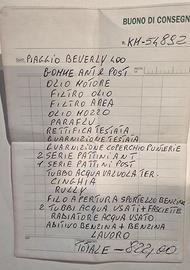 BUONO DI CONSEGNA
KM-54892
PIAGGIO BEVERLY 400
GOMME ANT E POST
OLIO MOTORE
FILTRO OLIO
FILTRO AREA
OLIO MOZZO
PARAFLU
RETTIFICA TESTATA
GUARNIZIONE TESTATA
GUARNIZIONE COPERCHIO PUNTERIE
2 SERIE PATTINI ANT
1 SERIE PATTINI POST
TUBBO ACQUA VALVOLA TER.
CINGHIA
RULLY
FILO APERTURA SPORTELLO BENZINA
2 TUBBI ACQUA USATI + FASCIETTE
RADIATORE ACQUA USATO
ADITIVO BENZINA + BENZINA
LAVORO
TOTALE = 822,00